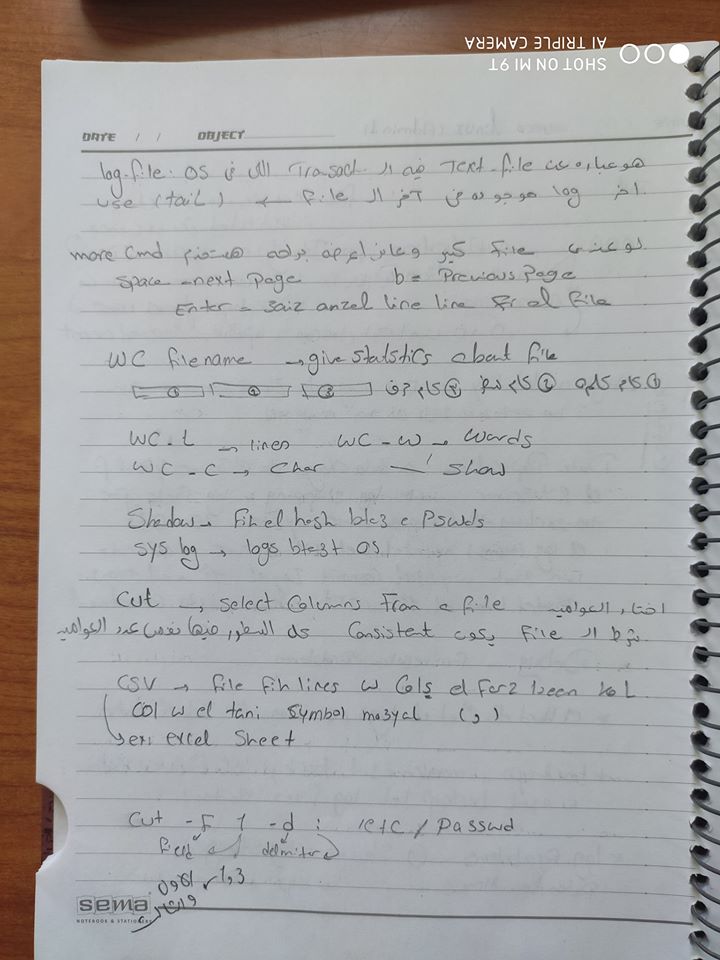 SHOT ON MI 9T
AI TRIPLE CAMERA
DATE / / OBJECT
log-file: هو عباره عن Text-file فيه ال Transact اللى فى OS
اخر log موجوده فى آخر ال file ← use (tail)
لو عندى file كبير وعايز اعرضه براحه هستخدم more Cmd
Space = next Page b = Previous Page
Enter = 3aiz anzel line line fi el file
WC filename → give Statstics about file
① كام ② كام ③ كام حرف
① ② ③
WC -L → lines WC -W → Words
WC -C → Char Show
Shadow → fih el hash bta3 e Pswds
sys log → logs bta3t OS
Cut → Select Columns From a file اختار العواميد
شرط ال File يكون Consistent كل السطور فيها نفس عدد العواميد
CSV → file fih lines w Cols el far2 been kol
Col w el tani Symbol mo3yal (,)
ex: excel Sheet
Cut -F 1 -d : /etc/Passwd
field delimiter
1,3
sema
NOTEBOOK & STATIONERY